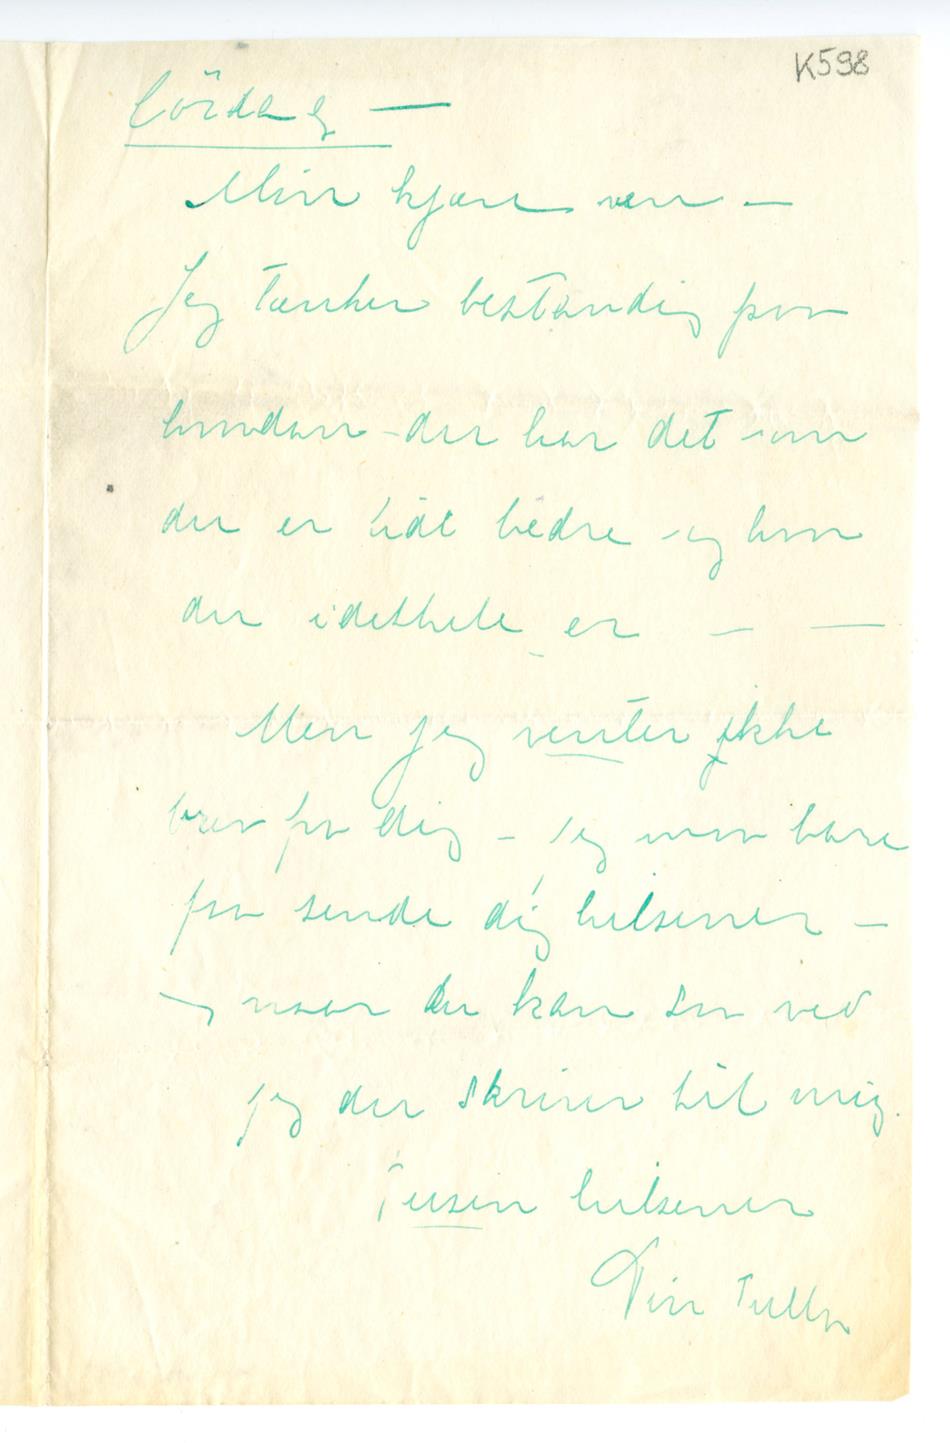 K598
Lördag —
Min kjære ven —
Jeg tænker bestandig paa
hvordan du har det – om
du er lidt bedre – og hvor
du idethele er — —
Men jeg venter ikke
brev fra dig – jeg maa bare
faa sende dig hilsener –
og naar du kan saa ved
jeg du skriver til mig.
Tusen hilsener
Din Tulla